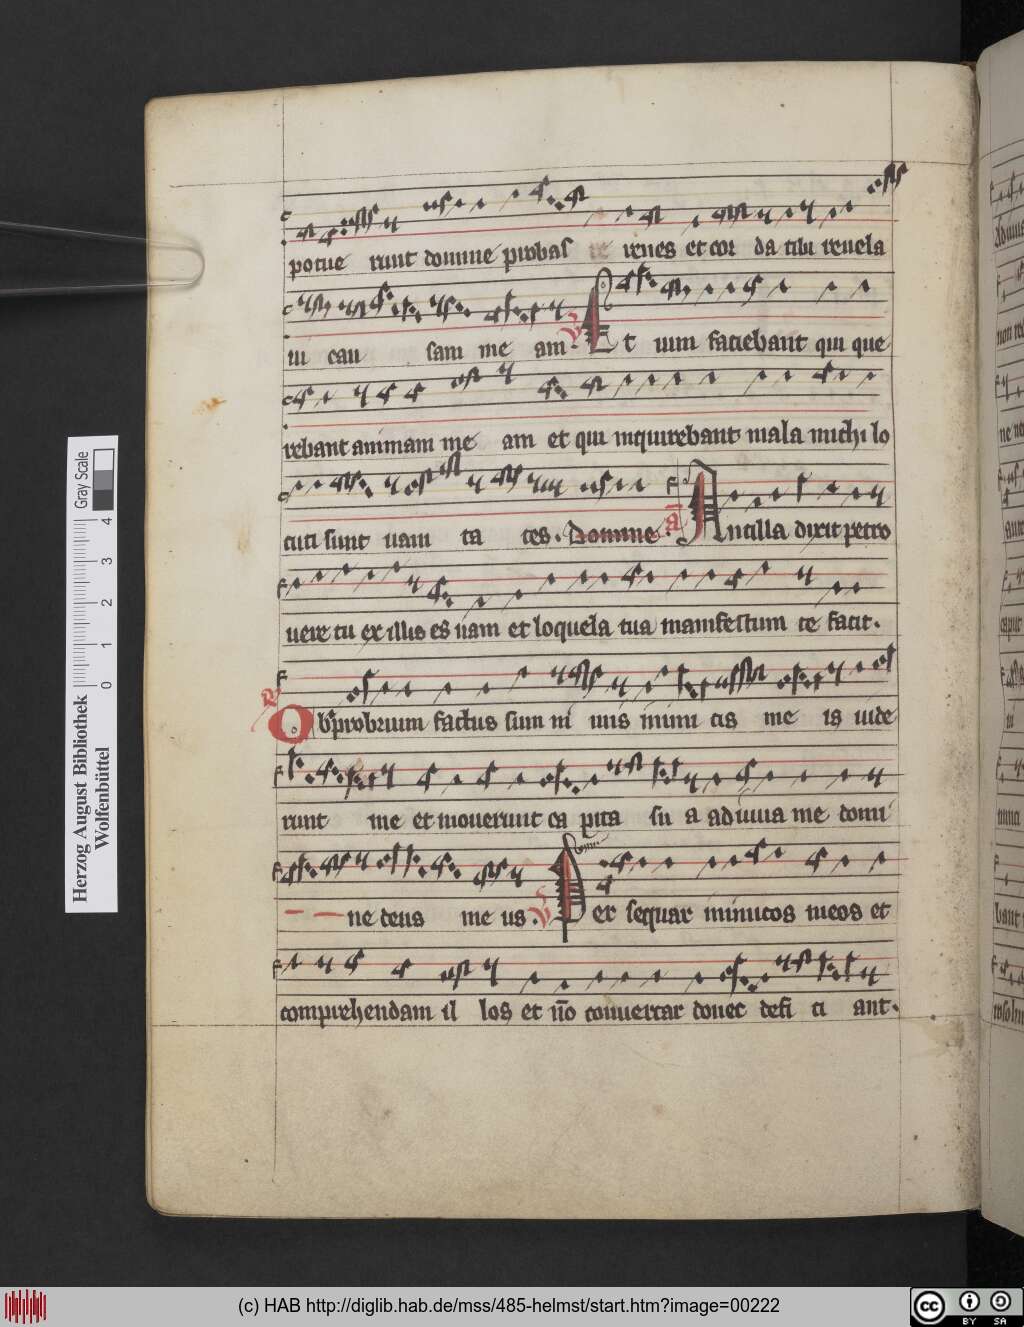 potue runt domine probas renes et cor da tibi reuela
ui cau sam me am V Et uim faciebant qui que
rebant animam me am et qui inquirebant mala michi lo
cuti sunt uani ta tes. Domine. a Ancilla dixit petro
uere tu ex illis es nam et loquela tua manifestum te facit.
R Obprobrium factus sum ni mis inimi cis me is uide
runt me et mouerunt ca pita su a adiuua me domi
ne deus me us. V Per sequar inimicos meos et
comprehendam il los et nō conuertar donec defi ci ant.
Herzog August Bibliothek
Wolfenbüttel
0 1 2 3 4
Gray Scale
(c) HAB http://diglib.hab.de/mss/485-helmst/start.htm?image=00222
cc BY SA